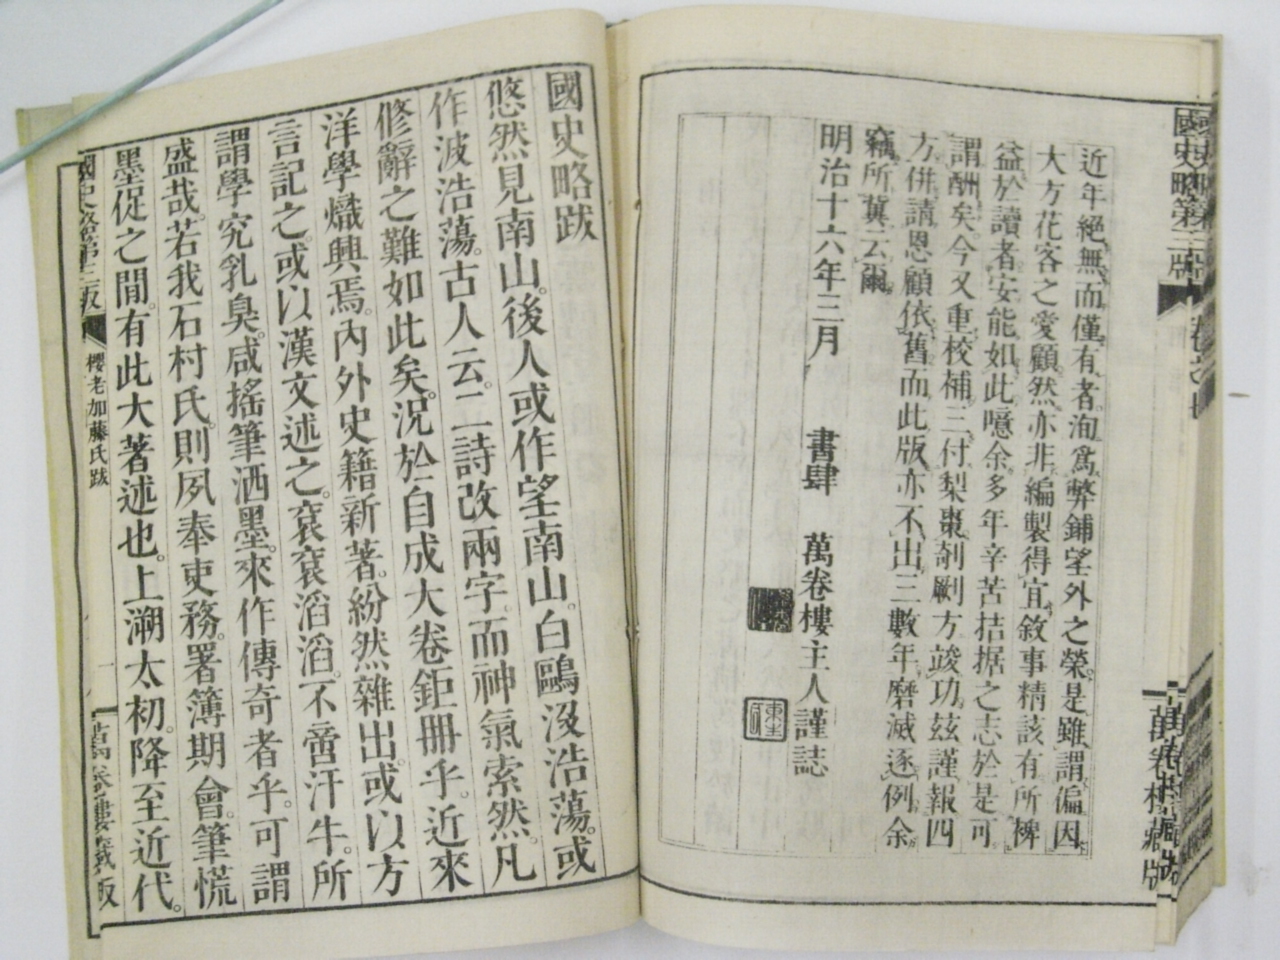 國史略第三版
卷之七
萬卷樓藏版
近年絕無而僅有者洵爲弊鋪望外之榮是雖謂偏因
大方花客之愛顧然亦非編製得宜敘事精該有所裨
益於讀者安能如此噫余多年辛苦拮据之志於是可
謂酬矣今又重校補三付梨棗剞劂方竣功茲謹報四
方併請恩顧依舊而此版亦不出三數年磨滅逐例余
竊所冀云爾
明治十六年三月 書肆 萬卷樓主人謹誌
國史略跋
悠然見南山。後人或作望南山。白鷗沒浩蕩。或
作波浩蕩。古人云。二詩改兩字。而神氣索然。凡
修辭之難如此矣。況於自成大卷鉅冊乎。近來
洋學熾興焉。內外史籍新著。紛然雜出。或以方
言記之。或以漢文述之。袞袞滔滔。不啻汗牛。所
謂學究乳臭。咸搖筆洒墨。來作傳奇者乎。可謂
盛哉。若我石村氏。則夙奉吏務。署簿期會。筆慌
墨促之間。有此大著述也。上溯太初。降至近代。
國史略第三版 櫻老加藤氏跋 一 萬卷樓藏版